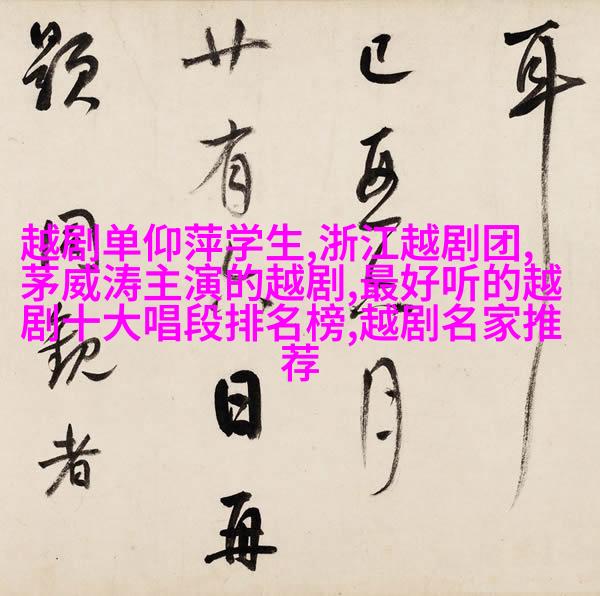 越剧单仰萍学生,浙江越剧团,
茅威涛主演的越剧,最好听的越
剧十大唱段排名榜,越剧名家推
荐
耳
已月
廿有日再
題同觀者